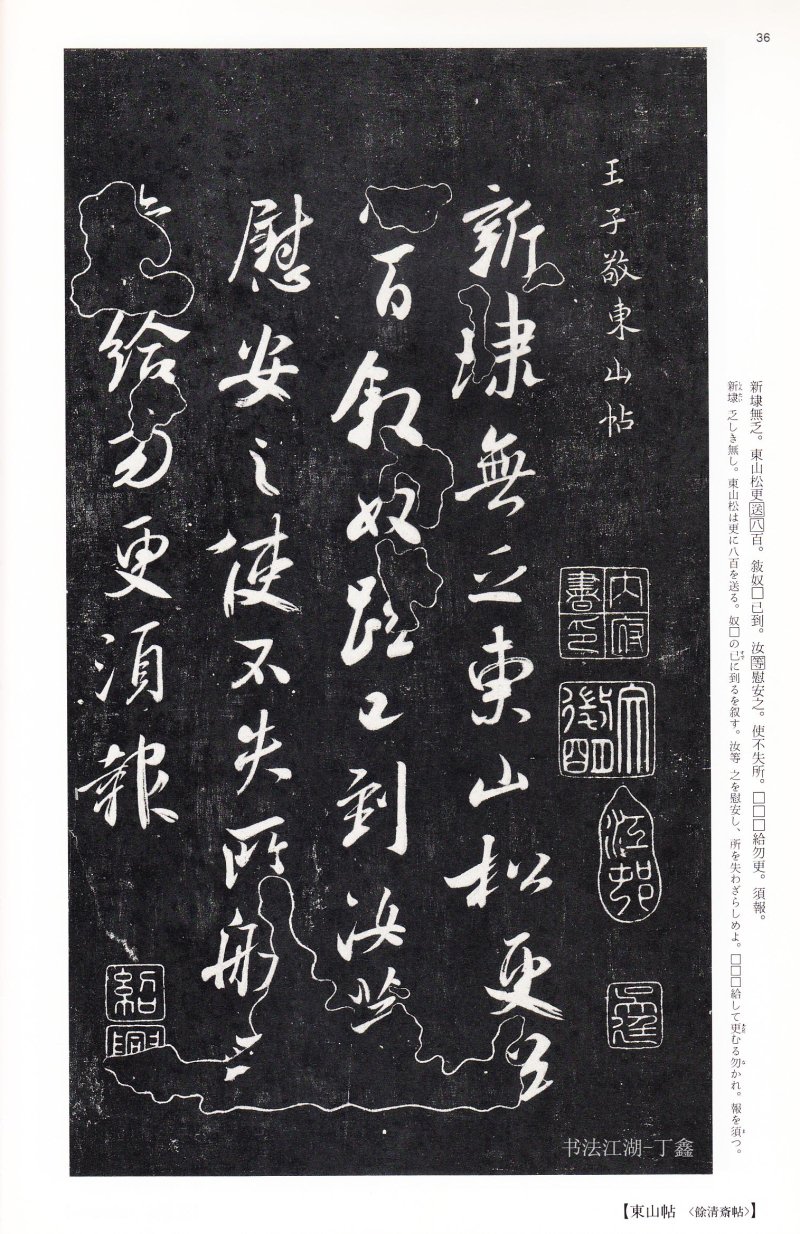 36
新埭無乏。東山松更送八百。敍奴□已到。汝等慰安之。使不失所。□□□給勿更。須報。
新埭乏しき無し。東山松は更に八百を送る。奴□の已に到るを叙す。汝等 之を慰安し、所を失わざらしめよ。□□□給して更むる勿かれ。報を須つ。
王子敬東山帖
新埭無乏東山松更
百敘奴 已到汝等
慰安之使不失所
給勿更須報
內府書印
紹興
书法江湖-丁鑫
【東山帖 〈餘清斎帖〉】